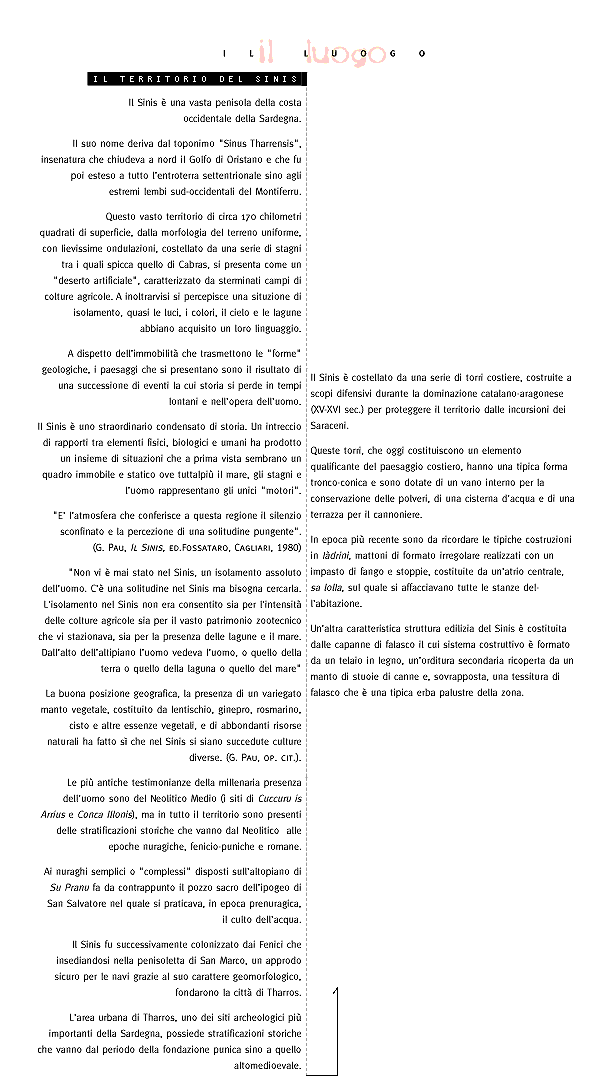 il luogo
IL LUOGO
IL TERRITORIO DEL SINIS
Il Sinis è una vasta penisola della costa
occidentale della Sardegna.
Il suo nome deriva dal toponimo "Sinus Tharrensis",
insenatura che chiudeva a nord il Golfo di Oristano e che fu
poi esteso a tutto l'entroterra settentrionale sino agli
estremi lembi sud-occidentali del Montiferru.
Questo vasto territorio di circa 170 chilometri
quadrati di superficie, dalla morfologia del terreno uniforme,
con lievissime ondulazioni, costellato da una serie di stagni
tra i quali spicca quello di Cabras, si presenta come un
"deserto artificiale", caratterizzato da sterminati campi di
colture agricole. A inoltrarvisi si percepisce una situzione di
isolamento, quasi le luci, i colori, il cielo e le lagune
abbiano acquisito un loro linguaggio.
A dispetto dell'immobilità che trasmettono le "forme"
geologiche, i paesaggi che si presentano sono il risultato di
una successione di eventi la cui storia si perde in tempi
lontani e nell'opera dell'uomo.
Il Sinis è uno straordinario condensato di storia. Un intreccio
di rapporti tra elementi fisici, biologici e umani ha prodotto
un insieme di situazioni che a prima vista sembrano un
quadro immobile e statico ove tuttalpiù il mare, gli stagni e
l'uomo rappresentano gli unici "motori".
"E' l'atmosfera che conferisce a questa regione il silenzio
sconfinato e la percezione di una solitudine pungente".
(G. PAU, IL SINIS, ED.FOSSATARO, CAGLIARI, 1980)
"Non vi è mai stato nel Sinis, un isolamento assoluto
dell'uomo. C'è una solitudine nel Sinis ma bisogna cercarla.
L'isolamento nel Sinis non era consentito sia per l'intensità
delle colture agricole sia per il vasto patrimonio zootecnico
che vi stazionava, sia per la presenza delle lagune e il mare.
Dall'alto dell'altipiano l'uomo vedeva l'uomo, o quello della
terra o quello della laguna o quello del mare"
La buona posizione geografica, la presenza di un variegato
manto vegetale, costituito da lentischio, ginepro, rosmarino,
cisto e altre essenze vegetali, e di abbondanti risorse
naturali ha fatto sì che nel Sinis si siano succedute culture
diverse. (G. PAU, OP. CIT.).
Le più antiche testimonianze della millenaria presenza
dell'uomo sono del Neolitico Medio (i siti di Cuccuru is
Arrius e Conca Illonis), ma in tutto il territorio sono presenti
delle stratificazioni storiche che vanno dal Neolitico alle
epoche nuragiche, fenicio-puniche e romane.
Ai nuraghi semplici o "complessi" disposti sull'altopiano di
Su Pranu fa da contrappunto il pozzo sacro dell'ipogeo di
San Salvatore nel quale si praticava, in epoca prenuragica,
il culto dell'acqua.
Il Sinis fu successivamente colonizzato dai Fenici che
insediandosi nella penisoletta di San Marco, un approdo
sicuro per le navi grazie al suo carattere geomorfologico,
fondarono la città di Tharros.
L'area urbana di Tharros, uno dei siti archeologici più
importanti della Sardegna, possiede stratificazioni storiche
che vanno dal periodo della fondazione punica sino a quello
altomedioevale.
Il Sinis è costellato da una serie di torri costiere, costruite a
scopi difensivi durante la dominazione catalano-aragonese
(XV-XVI sec.) per proteggere il territorio dalle incursioni dei
Saraceni.
Queste torri, che oggi costituiscono un elemento
qualificante del paesaggio costiero, hanno una tipica forma
tronco-conica e sono dotate di un vano interno per la
conservazione delle polveri, di una cisterna d'acqua e di una
terrazza per il cannoniere.
In epoca più recente sono da ricordare le tipiche costruzioni
in làdrini, mattoni di formato irregolare realizzati con un
impasto di fango e stoppie, costituite da un'atrio centrale,
sa lolla, sul quale si affacciavano tutte le stanze del-
l'abitazione.
Un'altra caratteristica struttura edilizia del Sinis è costituita
dalle capanne di falasco il cui sistema costruttivo è formato
da un telaio in legno, un'orditura secondaria ricoperta da un
manto di stuoie di canne e, sovrapposta, una tessitura di
falasco che è una tipica erba palustre della zona.
1